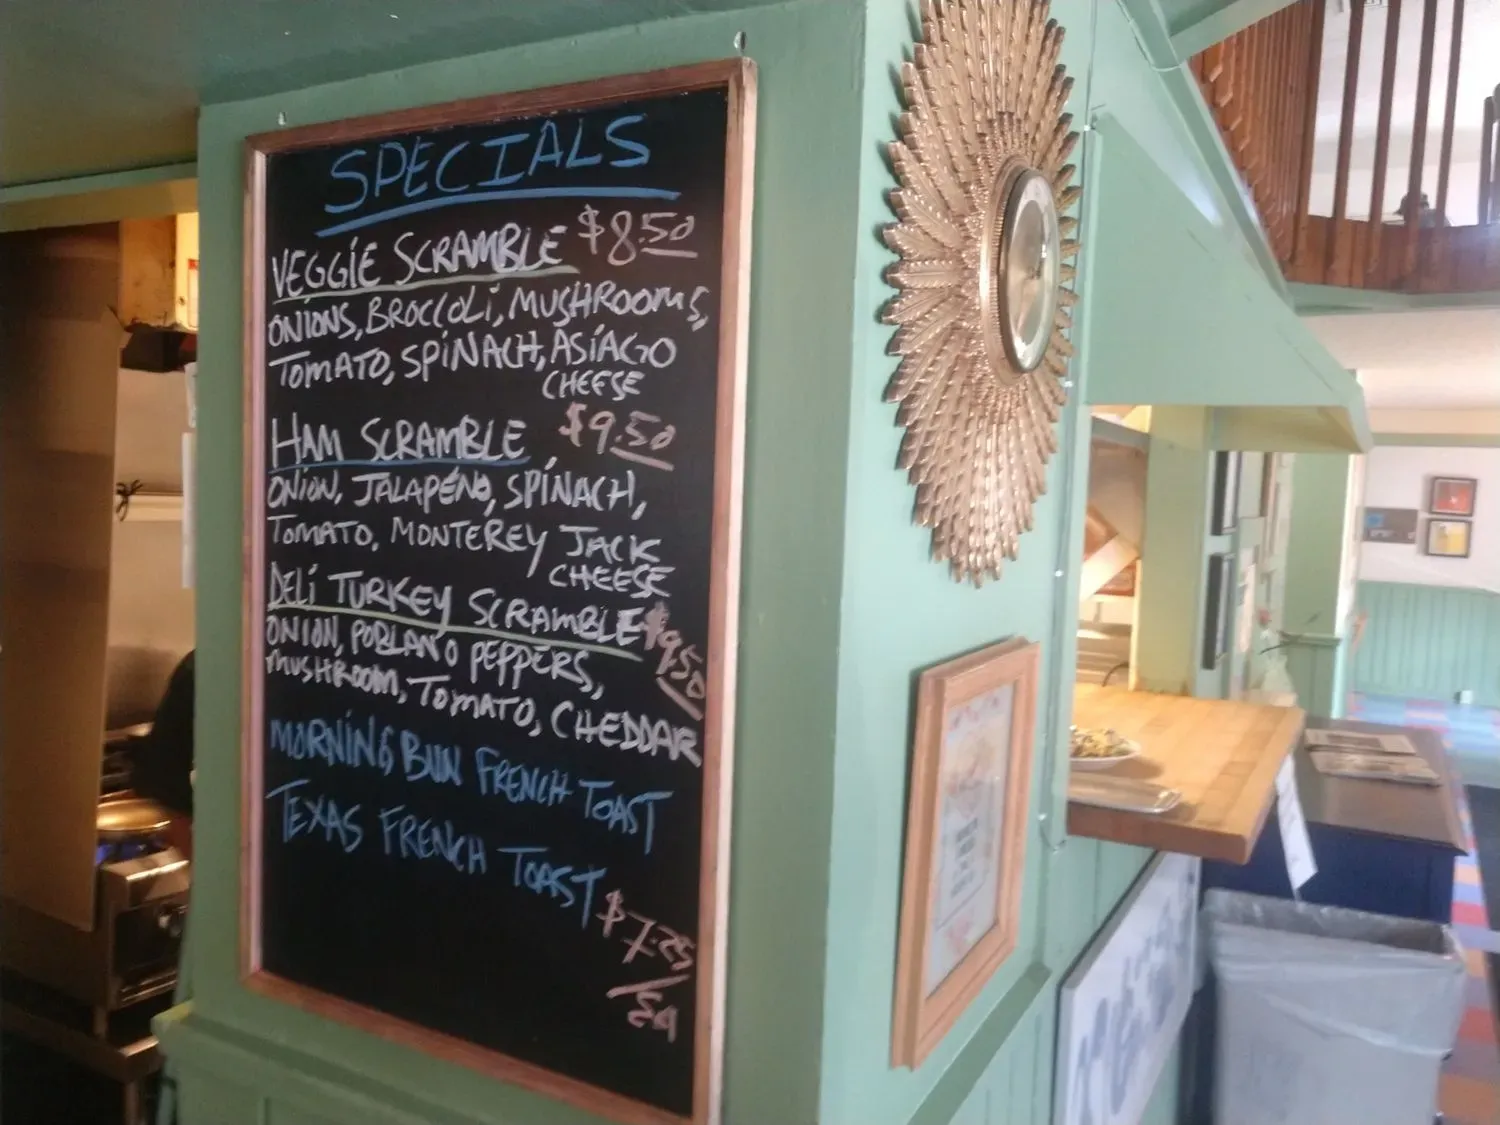 SPECIALS
VEGGIE SCRAMBLE $8.50
ONIONS, BROCCOLI, MUSHROOMS,
TOMATO, SPINACH, ASIAGO
CHEESE
HAM SCRAMBLE $9.50
ONION, JALAPÉNO, SPINACH,
TOMATO, MONTEREY JACK
CHEESE
DELI TURKEY SCRAMBLE $9.50
ONION, POBLANO PEPPERS,
MUSHROOM, TOMATO, CHEDDAR
MORNING BUN FRENCH TOAST
TEXAS FRENCH TOAST
$7.25
/EA